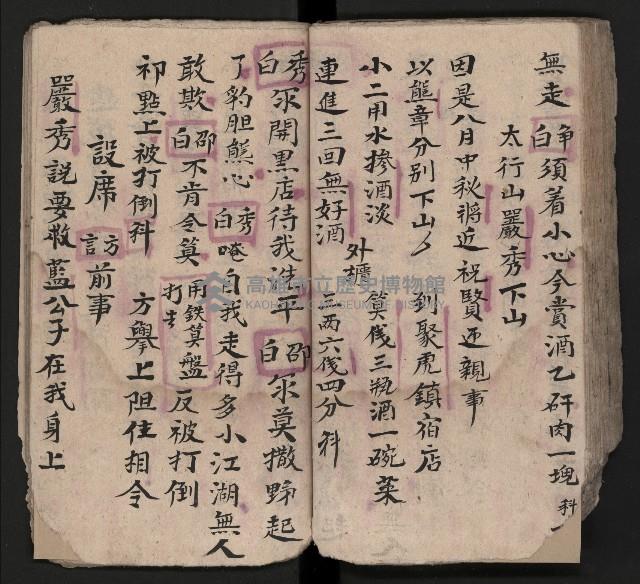 無走
净白須着小心今賞酒乙矸肉一塊 科
太行山嚴秀下山
因是八月中秋將近祝賢还親事
以熊章分别下山 到聚虎鎮宿店
小二用水摻酒淡 外擡 算伐三瓶酒一碗菜
連進三回無好酒 三両六伐四分 科
秀白 尔開黒店待我 邵白 尔莫撒野起
了豹胆熊心 秀白 自我走得多小江湖無人
敢欺 邵白 不肯令莫 打去 用鉄算盤 反被打倒
祁點上被打倒科 方擧上阻住相令
設席 方言 前事
嚴秀説要救藍公子在我身上
高雄市立歷史博物館
KAOHSIUNG MUSEUM OF HISTORY